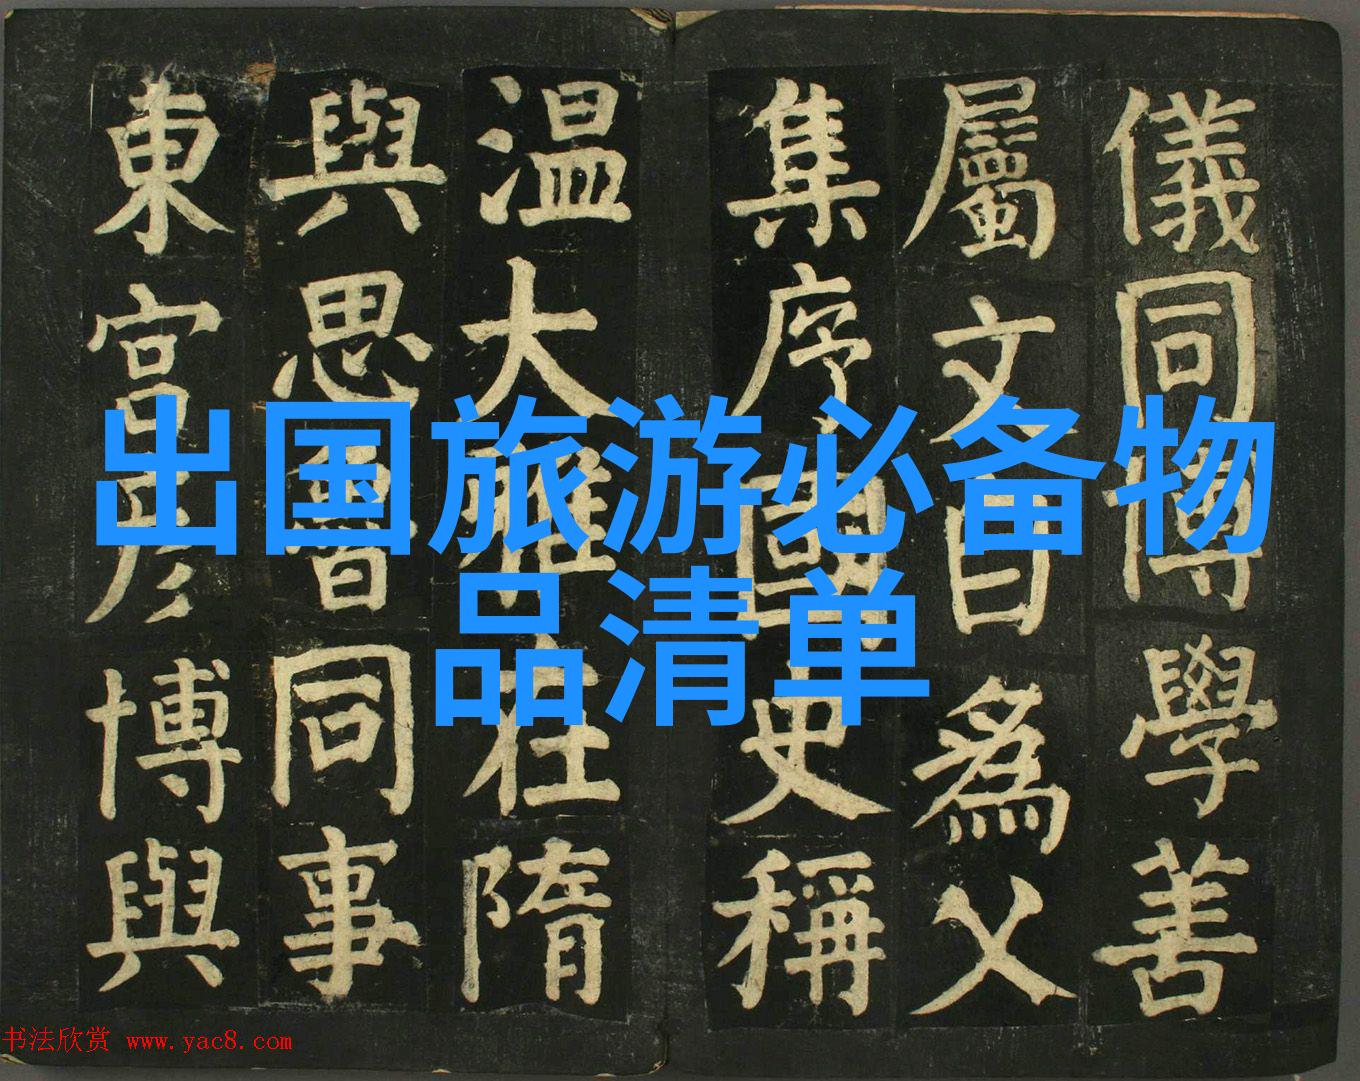 出国旅游必备物
品清单
儀同博學善
屬文自為父
集序國史稱
温大雅在隋
與思魯同事
東宫彦博與
书法欣赏 www.yac8.com